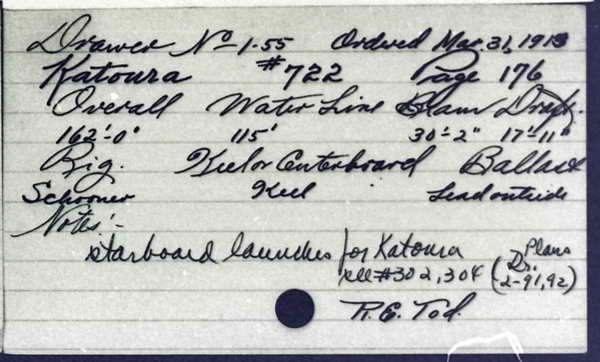 Drawer No 1-55 Ordered Mar. 31, 1913
Katoura #722 Page 176
Overall Water Line Beam Draft
162'-0" 115' 30'-2" 17'-11"
Rig. Keel or Centerboard Ballast
Schooner Keel Lead outside
Notes:-
starboard launches for Katoura Plans
see #302, 304 (Dr. 2-91,92)
R.E. Tod.